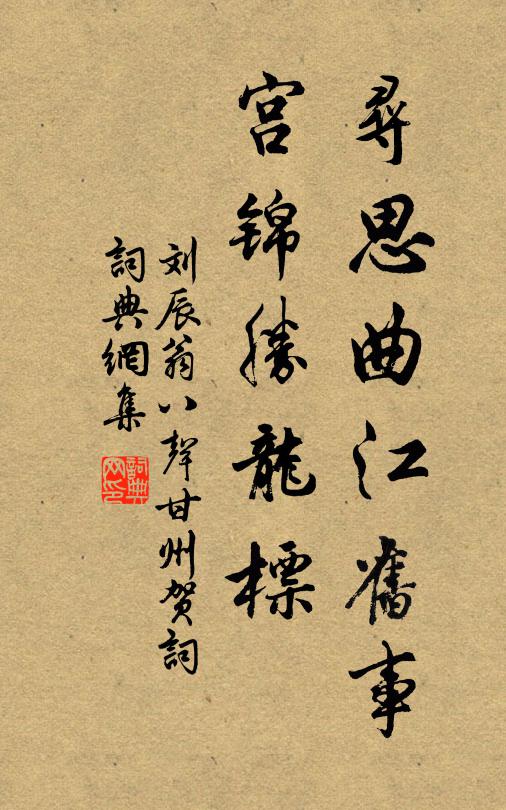 尋思曲江舊事
宮锦勝龍標
刘辰翁八聲甘州贺詞
詞典網集
詞典网印